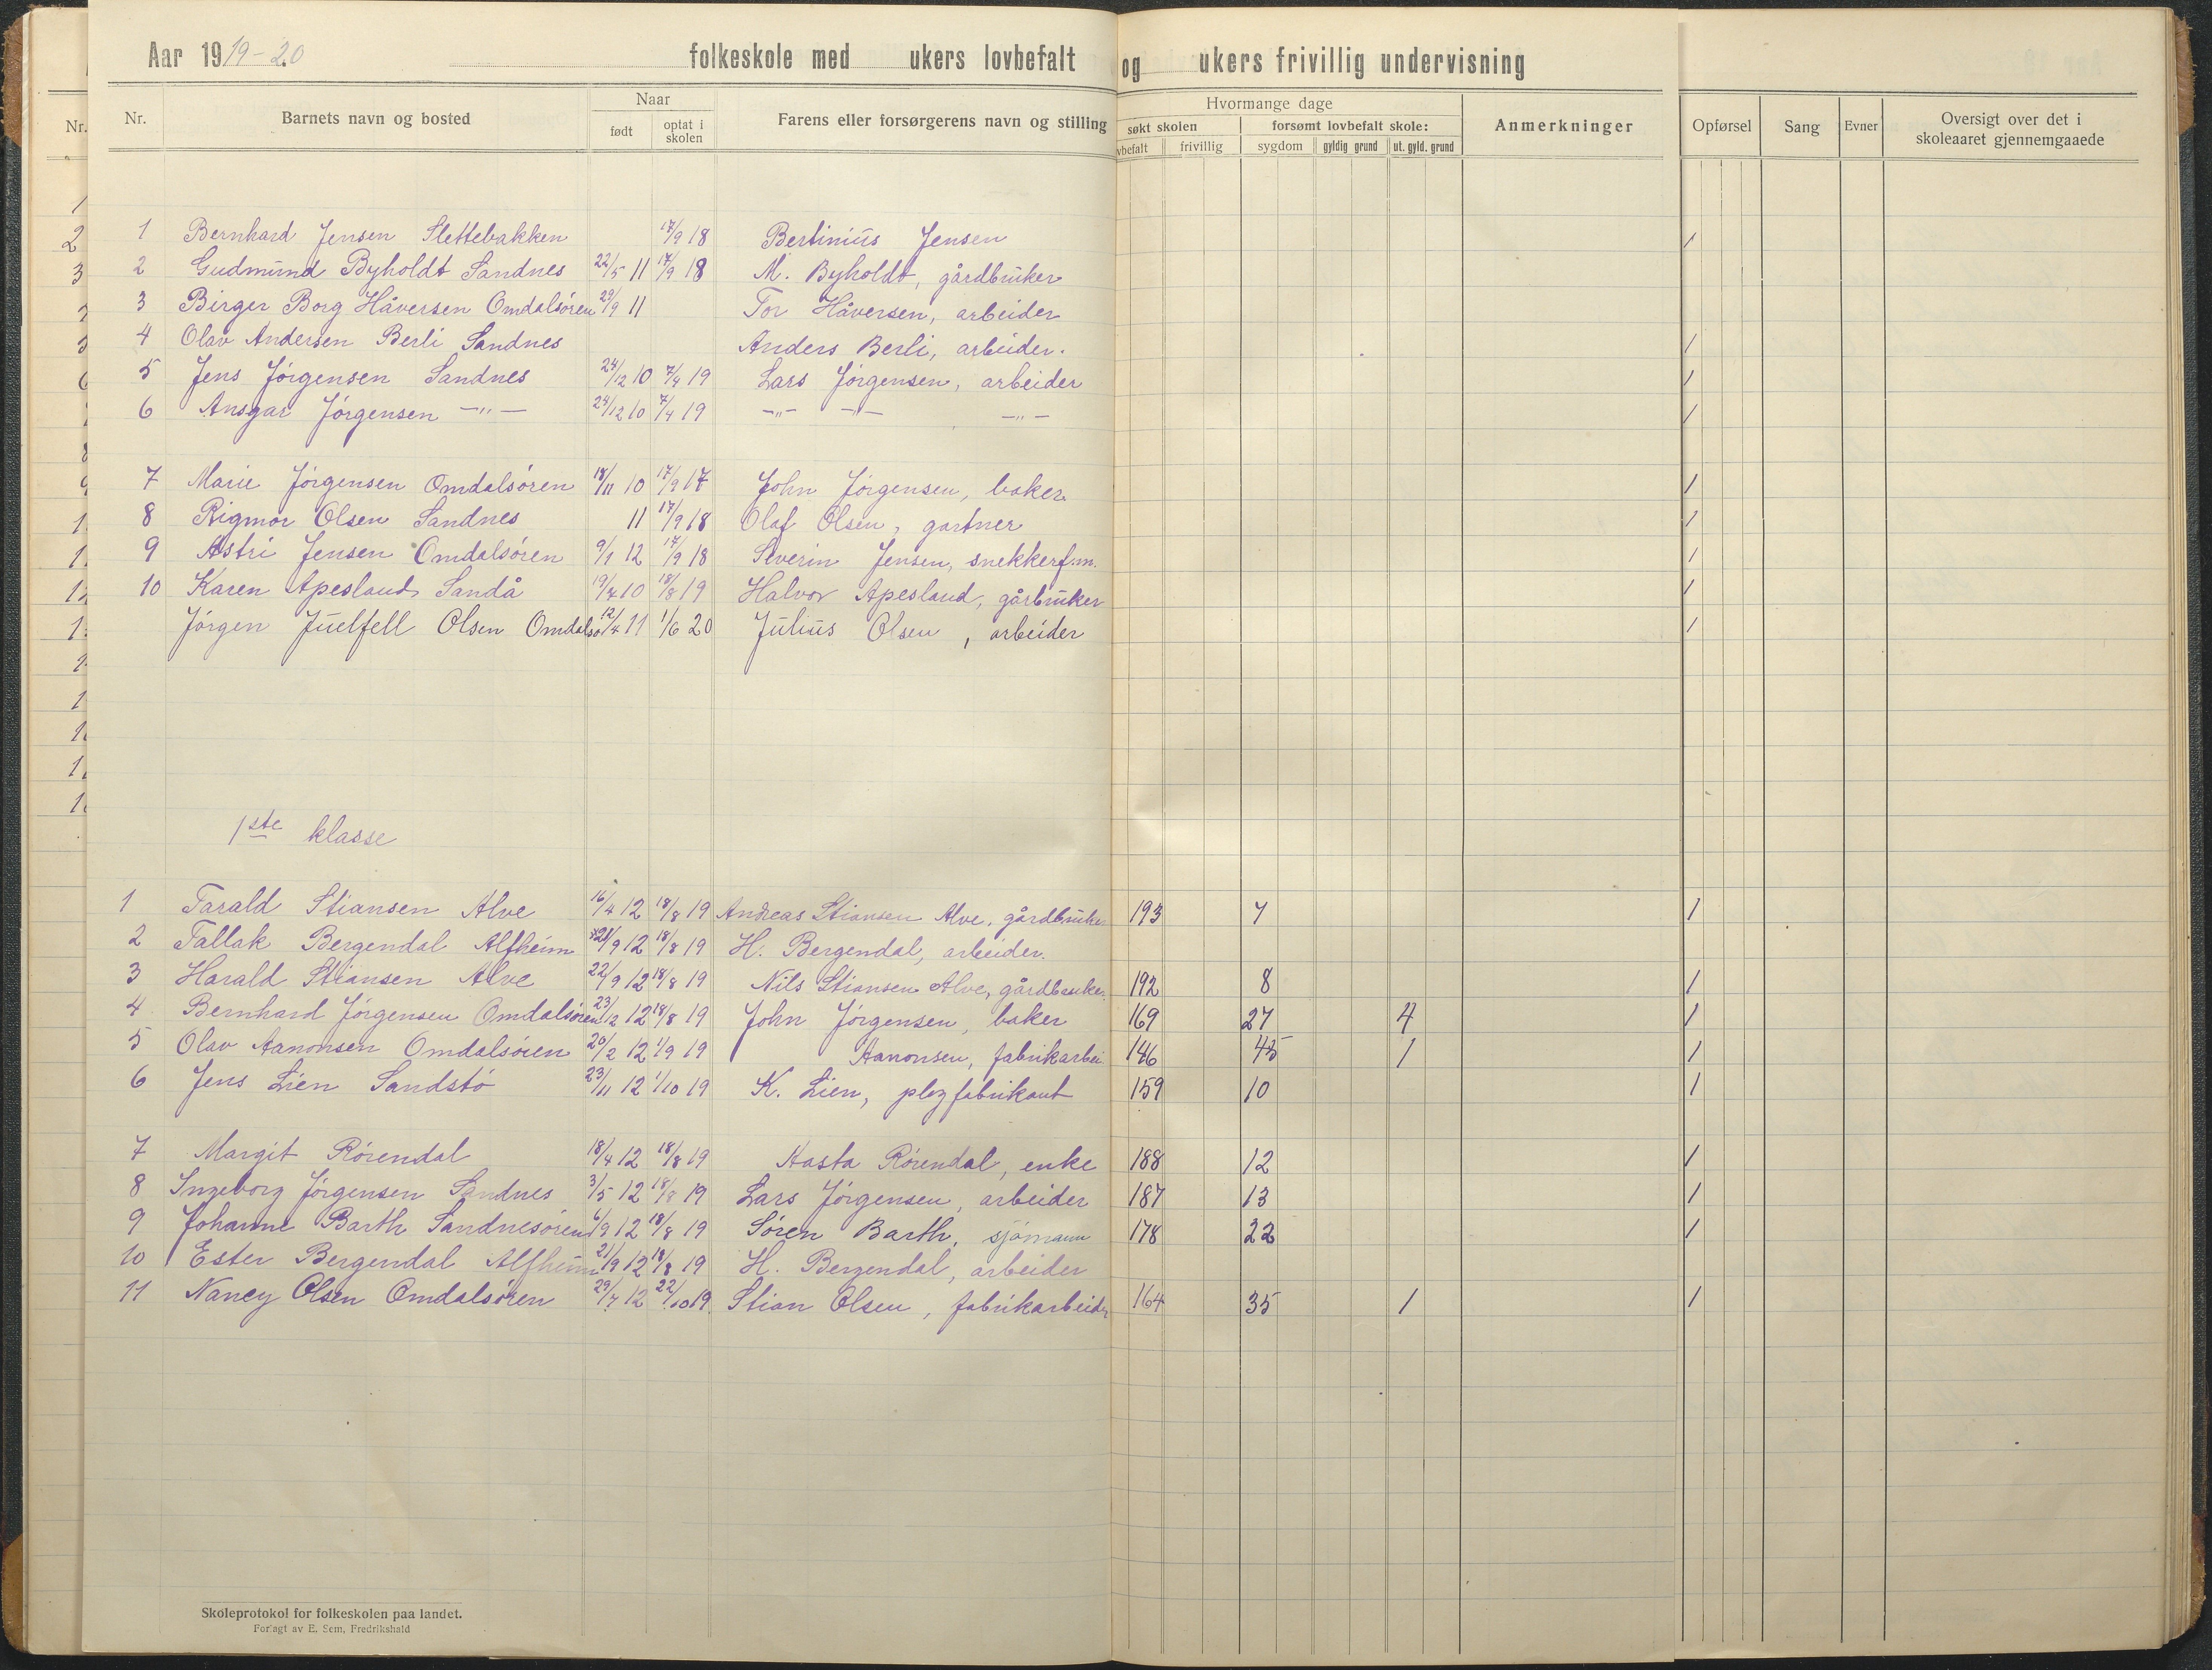 Aar 1919-20 folkeskole med ukers lovbefalt og ukers frivillig undervisning
Nr. Nr. Barnets navn og bosted Naar født optat i skolen Farens eller forsørgerens navn og stilling Hvormange dage søkt skolen forsømt lovbefalt skole: vbefalt frivillig sygdom gyldig grund ut. gyld. grund Anmerkninger Opførsel Sang Evner Oversigt over det i skoleaaret gjennemgaaede
1 Bernhard Jensen Slettebakken 17/9 18 Bertinius Jensen 1
2 Gudmund Byholdt Sandnes 22/5 11 17/9 18 M. Byholdt, gårdbruker
3 Birger Borg Håversen Omdalsören 29/9 11 Tor Håversen, arbeider
4 Olav Andersen Berli Sandnes Anders Berli, arbeider. 1
5 Jens Jörgensen Sandnes 24/12 10 7/4 19 Lars Jörgensen, arbeider 1
6 Ansgar Jörgensen -"- 24/12 10 7/4 19 -"- -"- -"- 1
7 Marie Jörgensen Omdalsören 18/11 10 17/9 17 John Jörgensen, baker 1
8 Rigmor Olsen Sandnes 11 17/9 18 Olaf Olsen, gartner 1
9 Astri Jensen Omdalsören 9/1 12 17/9 18 Severin Jensen, snekkerf.m. 1
10 Karen Apesland Sandå 19/4 10 18/8 19 Halvor Apesland, gårbruker 1
Jörgen Juelfell Olsen Omdalsö 12/4 11 1/6 20 Julius Olsen, arbeider 1
1ste klasse
1 Tarald Stiansen Alve 16/4 12 18/8 19 Andreas Stiansen Alve, gårdbruke 193 7 1
2 Tallak Bergendal Alfheim 21/9 12 18/8 19 H. Bergendal, arbeider.
3 Harald Stiansen Alve 22/9 12 18/8 19 Nils Stiansen Alve, gårdbruker. 192 8 1
4 Bernhard Jörgensen Omdalsören 23/12 12 18/8 19 John Jörgensen, baker 169 27 4 1
5 Olav Aanonsen Omdalsören 20/2 12 1/9 19 Aanonsen, fabrikarbei 146 45 1 1
6 Jens Lien Sandstö 23/11 12 1/10 19 K. Lien, plogfabrikant 159 10 1
7 Margit Rörendal 18/4 12 18/8 19 Aasta Rörendal, enke 188 12 1
8 Ingeborg Jörgensen Sandnes 3/5 12 18/8 19 Lars Jörgensen, arbeider 187 13 1
9 Johanne Barth Sandnesören 6/9 12 18/8 19 Sören Barth, sjömann 178 22 1
10 Ester Bergendal Alfheim 21/9 12 18/8 19 H. Bergendal, arbeider
11 Nancy Olsen Omdalsören 29/7 12 22/10 19 Stian Olsen, fabrikarbeider 164 35 1 1
Skoleprotokol for folkeskolen paa landet.
Forlagt av E. Sem, Fredrikshald